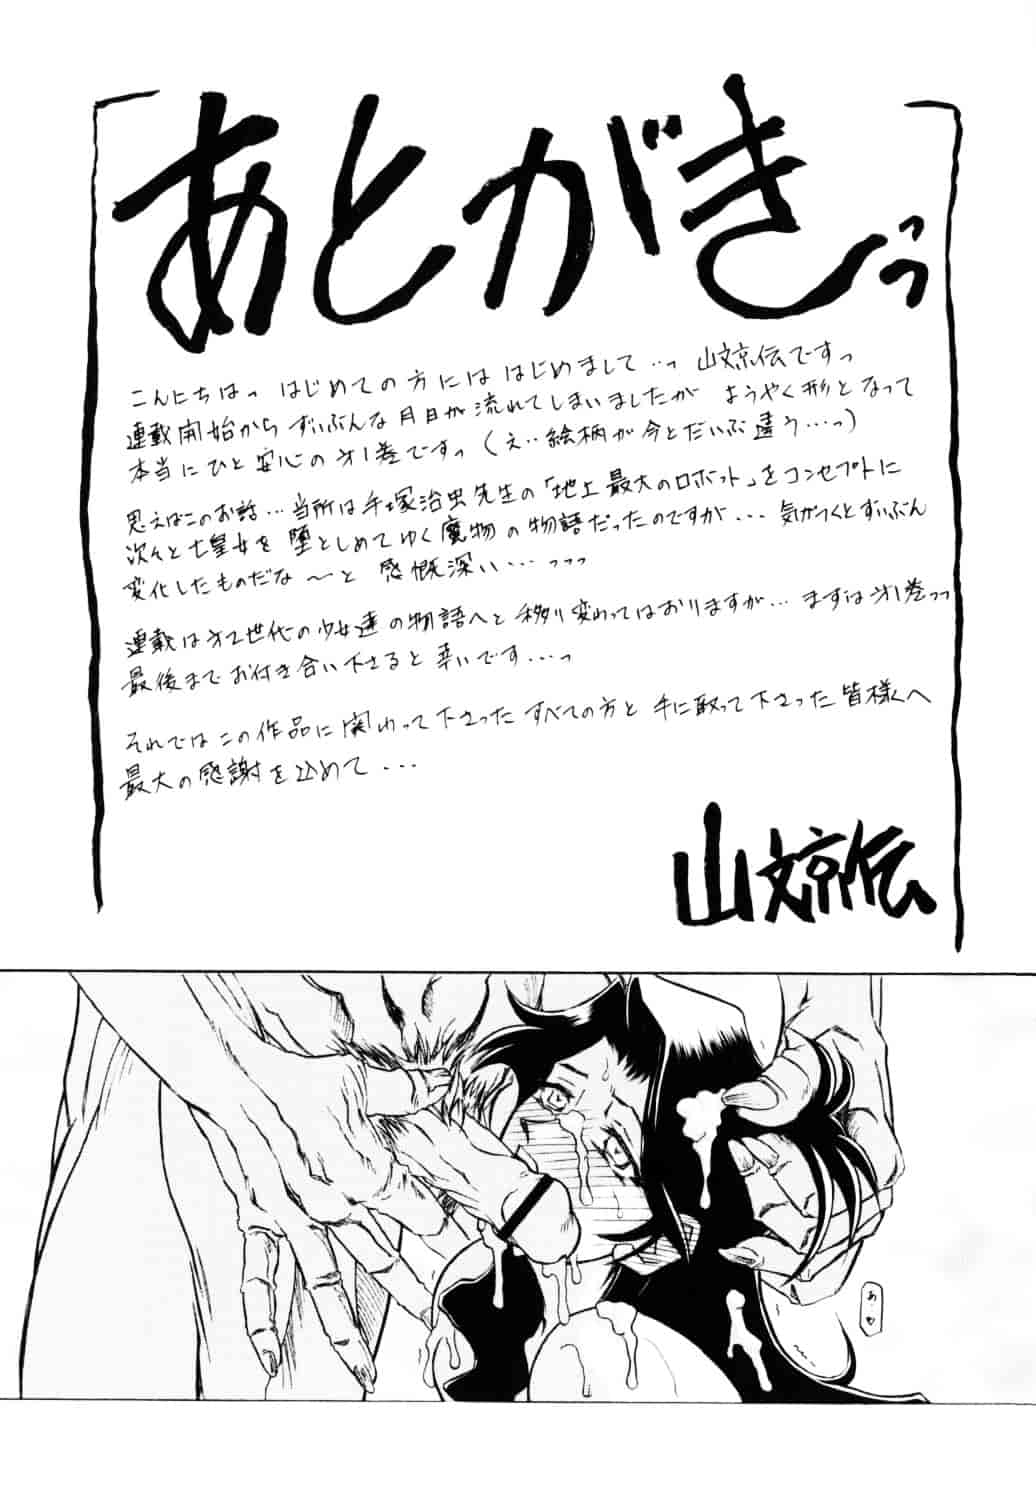 あとがきっっ
こんにちはっ はじめての方には はじめまして…っ 山文京伝ですっ
連載開始から ずいぶんな月日が流れてしまいましたが ようやく形となって
本当にひと安心の才1巻ですっ(え…絵柄が今とだいぶ違う…っ)
思えばこのお話…当所は手塚治虫先生の「地上最大のロボット」をコンセプトに
次々と七皇女を 堕としめてゆく魔物の物語だったのですが… 気がつくとずいぶん
変化したものだな～と 感慨深い…っっっ
連載は才2世代の少女達の物語へと移り変わってはおりますが… まずは才1巻っっ
最後までお付き合い下さると幸いです…っ
それでは この作品に関わって下さった すべての方と 手に取って下さった皆様へ
最大の感謝を込めて...
山文京伝
あ…♥